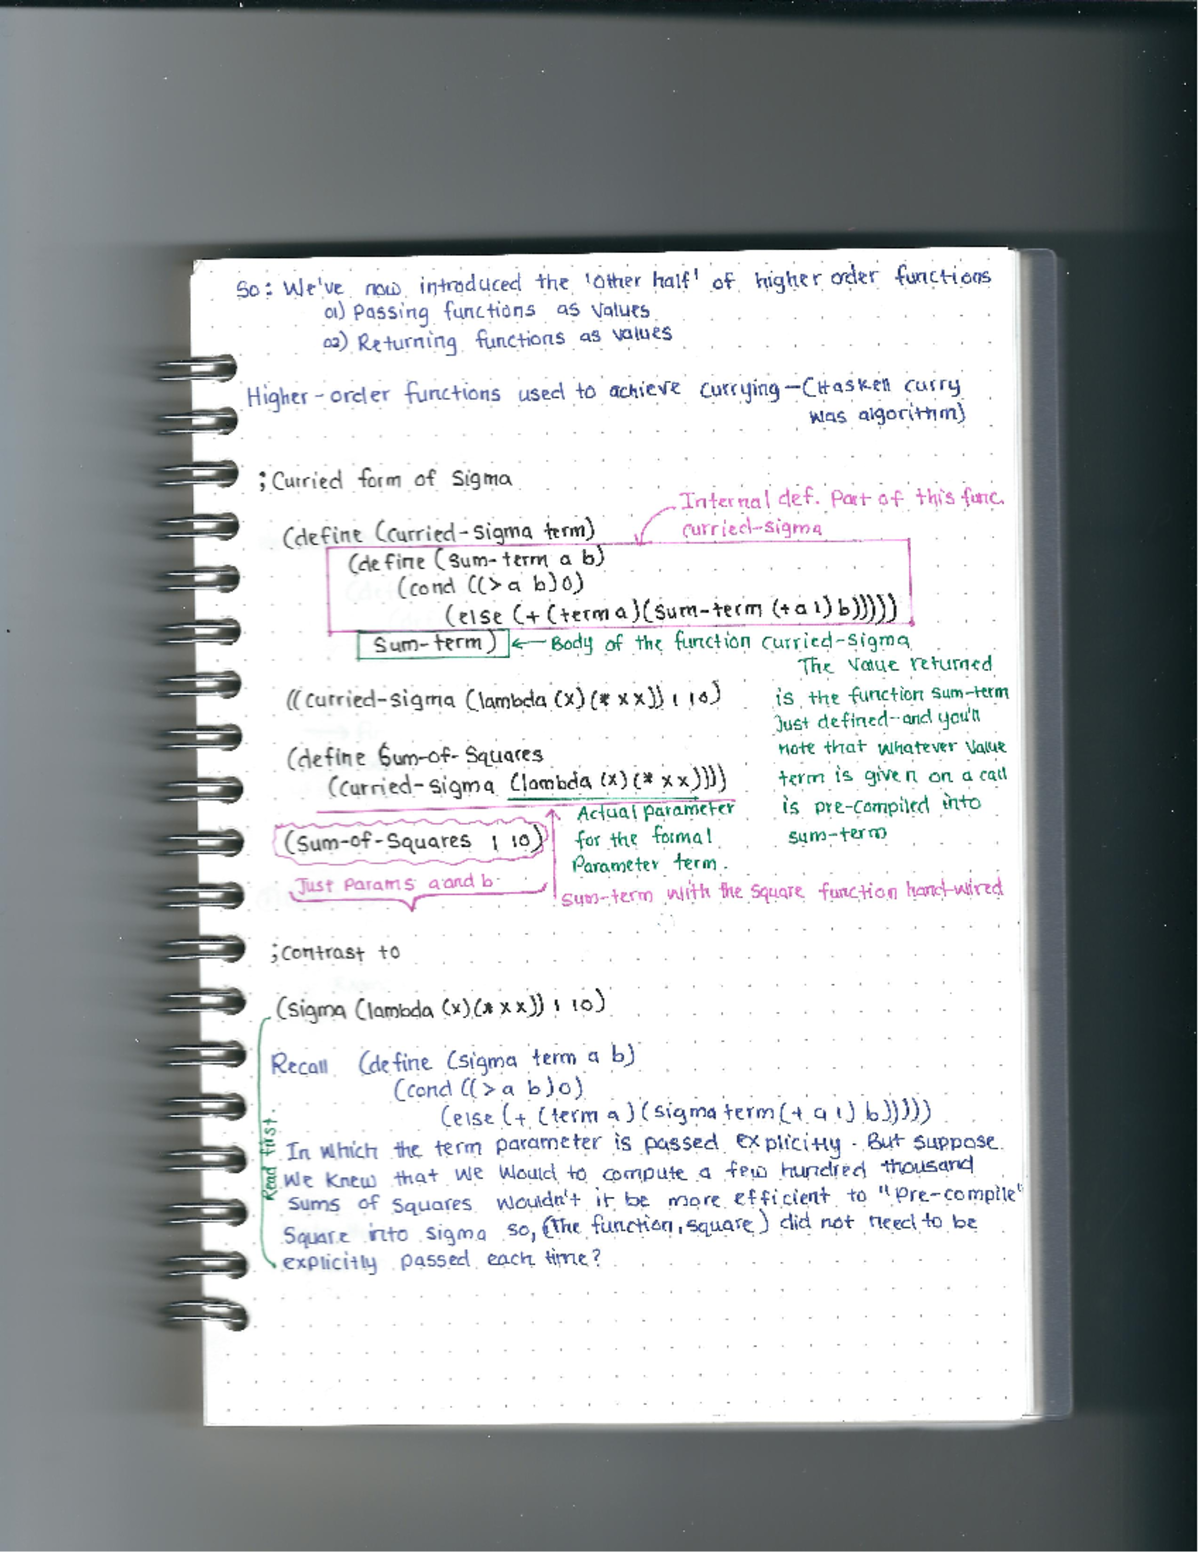 So: We've now introduced the 'other half' of higher order functions
01) Passing functions as values
02) Returning functions as values
Higher-order functions used to achieve currying—(Haskell curry
was algorithm)
;Curried form of Sigma
Internal def. Part of this func.
curried-sigma
(define (curried-sigma term)
(define (sum-term a b)
(cond ((> a b) 0)
(else (+ (term a)(sum-term (+ a 1) b)))))
Sum-term) ← Body of the function curried-sigma
The value returned
is the function sum-term
Just defined--and you'll
note that whatever value
term is given on a call
is pre-compiled into
sum-term
((curried-sigma (lambda (x)(* x x)) 1 10)
(define Sum-of-Squares
(curried-sigma (lambda (x)(* x x))))
Actual parameter
for the formal
Parameter term.
(Sum-of-Squares 1 10)
Just Params a and b
sum-term with the square function hand-wired
;Contrast to
(sigma (lambda (x)(* x x)) 1 10)
Read first.
Recall (define (sigma term a b)
(cond ((> a b) 0)
(else (+ (term a)(sigma term(+ a 1) b)))))
In which the term parameter is passed explicitly. But suppose
we knew that we would to compute a few hundred thousand
sums of squares wouldn't it be more efficient to "pre-compile"
Square into sigma so, (the function, square) did not need to be
explicitly passed each time?